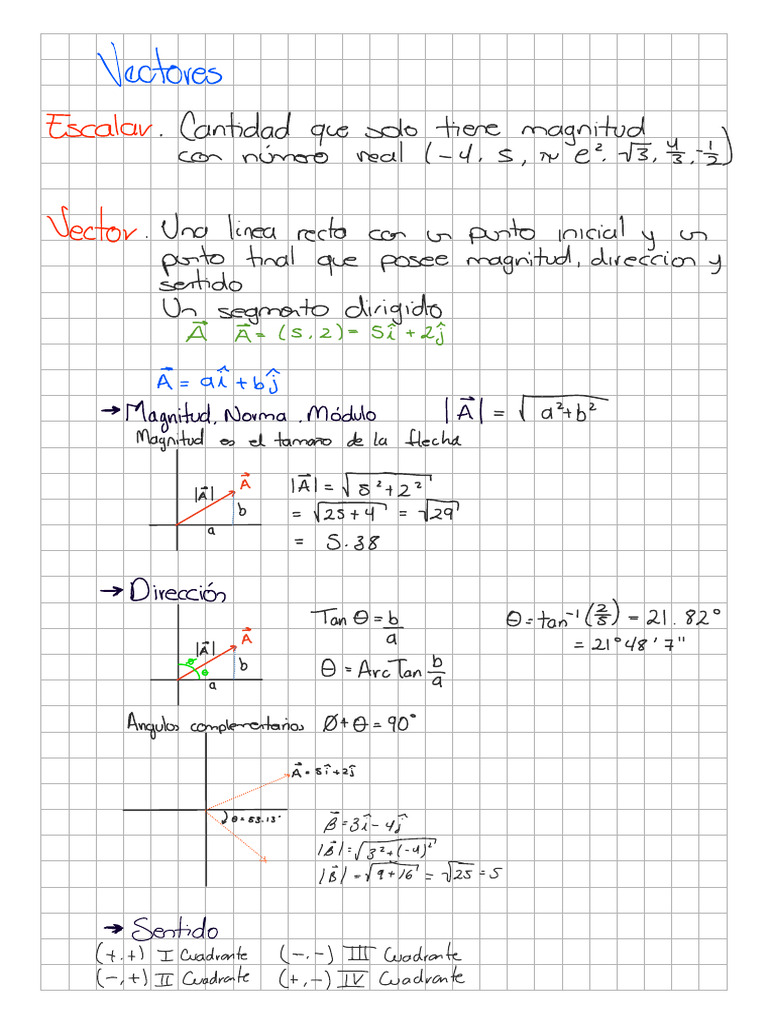 Vectores
Escalar. Cantidad que solo tiene magnitud
con número real (-4, 5, π e², √3, 4/3, -1/2)
Vector. Una linea recta con un punto inicial y un
punto final que posee magnitud, direccion y
sentido
Un segmento dirigido
A⃗ A⃗ = (5,2) = 5î + 2ĵ
A⃗ = aî + bĵ
→ Magnitud, Norma, Módulo |A⃗| = √(a²+b²)
Magnitud es el tamaño de la flecha
|A⃗| A⃗ b a
|A⃗| = √(5²+2²)
= √(25+4) = √29
= 5.38
→ Dirección
|A⃗| A⃗ θ θ b a
Tan θ = b/a
θ = ArcTan b/a
θ = tan⁻¹(2/5) = 21.82°
= 21°48'7"
Angulos complementarios Ø + θ = 90°
A⃗ = 5î + 2ĵ
θ = 53.13°
B⃗ = 3î - 4ĵ
|B⃗| = √(3²+(-4)²)
|B⃗| = √(9+16) = √25 = 5
→ Sentido
(+,+) I Cuadrante (-,-) III Cuadrante
(-,+) II Cuadrante (+,-) IV Cuadrante